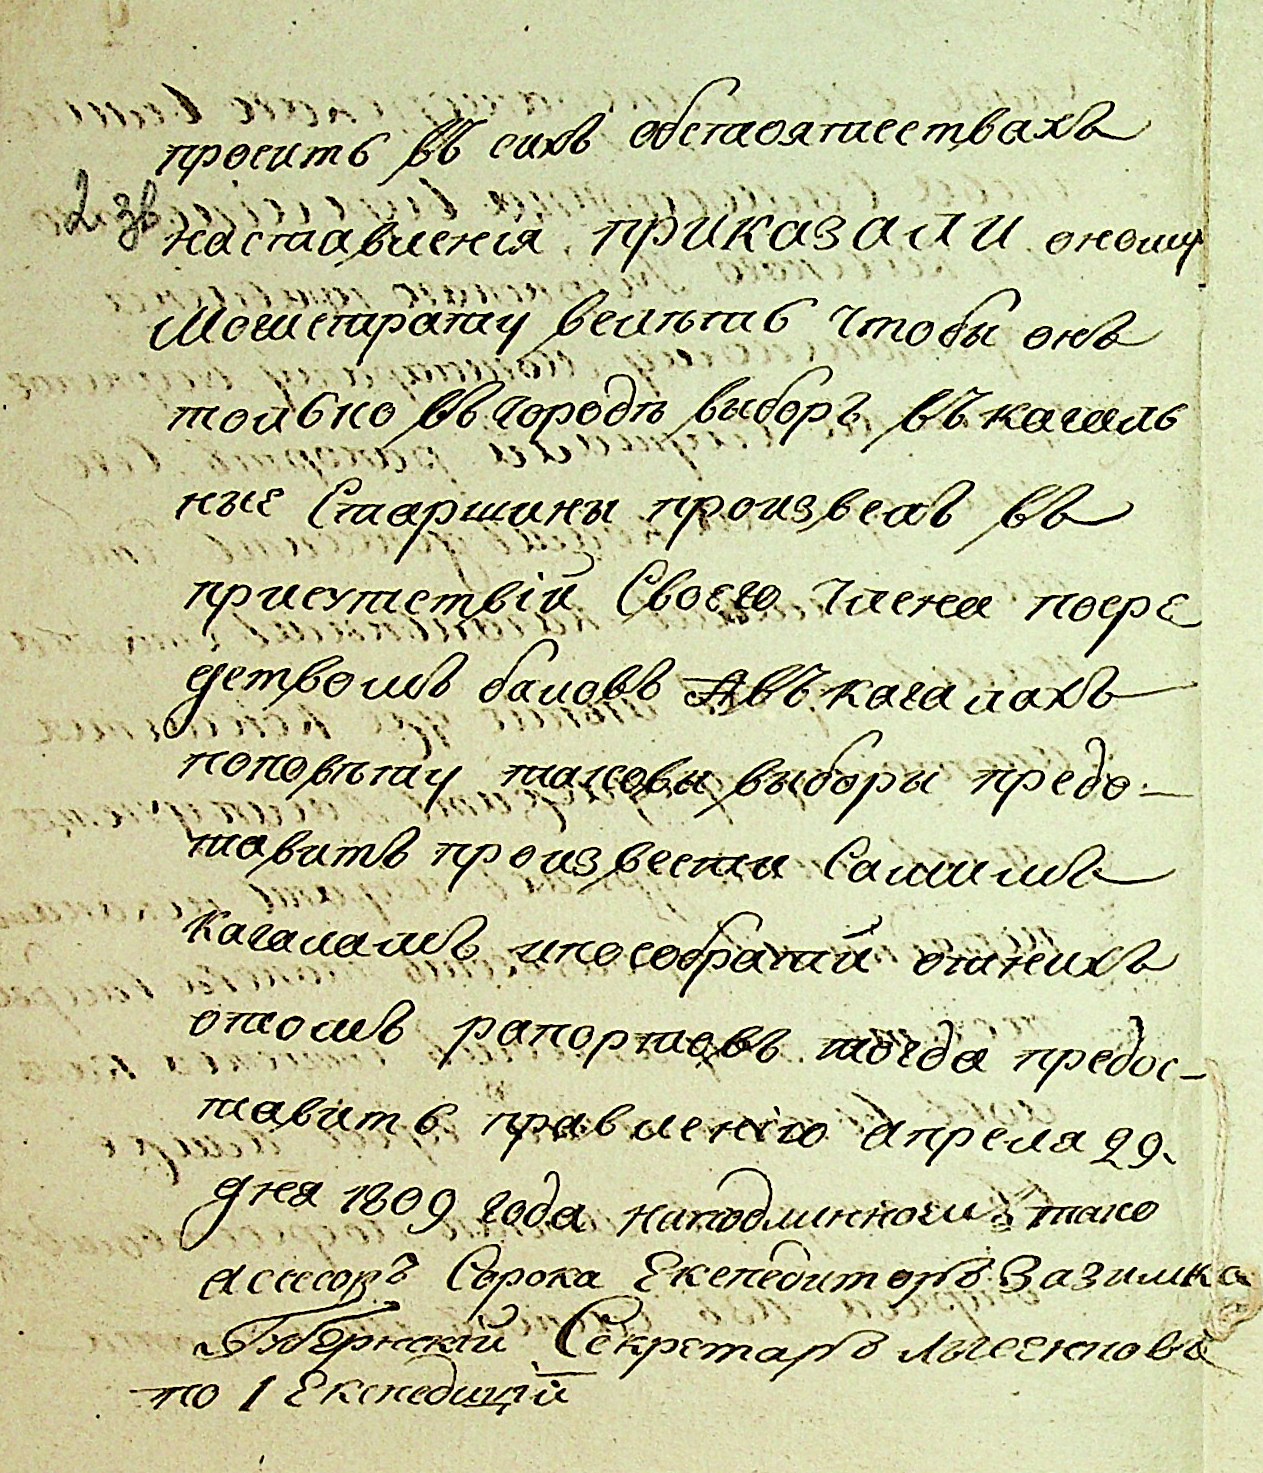 проситъ въ сихъ обстаоятиествахъ
2 зв
наставленiя, приказали оному
Могистрату велѣть чтобы онъ
только въ городѣ выборъ въ кагаль
ные Старшины произвелъ въ
присутствiи Своего члена посре
дствомъ баловъ Авъ кагалахъ
поповѣту таковы выборы предо-
тавить произвести Самимъ
кагаламъ ипособратiи отнихъ
отомъ рапортовъ тогда предос-
тавить правленiю апреля 29.
дня 1809 года наподлинномъ тако
асесоръ Сорока Експедиторъ Зазимка
Губернскiй Секретаръ
по 1 Експедицiи